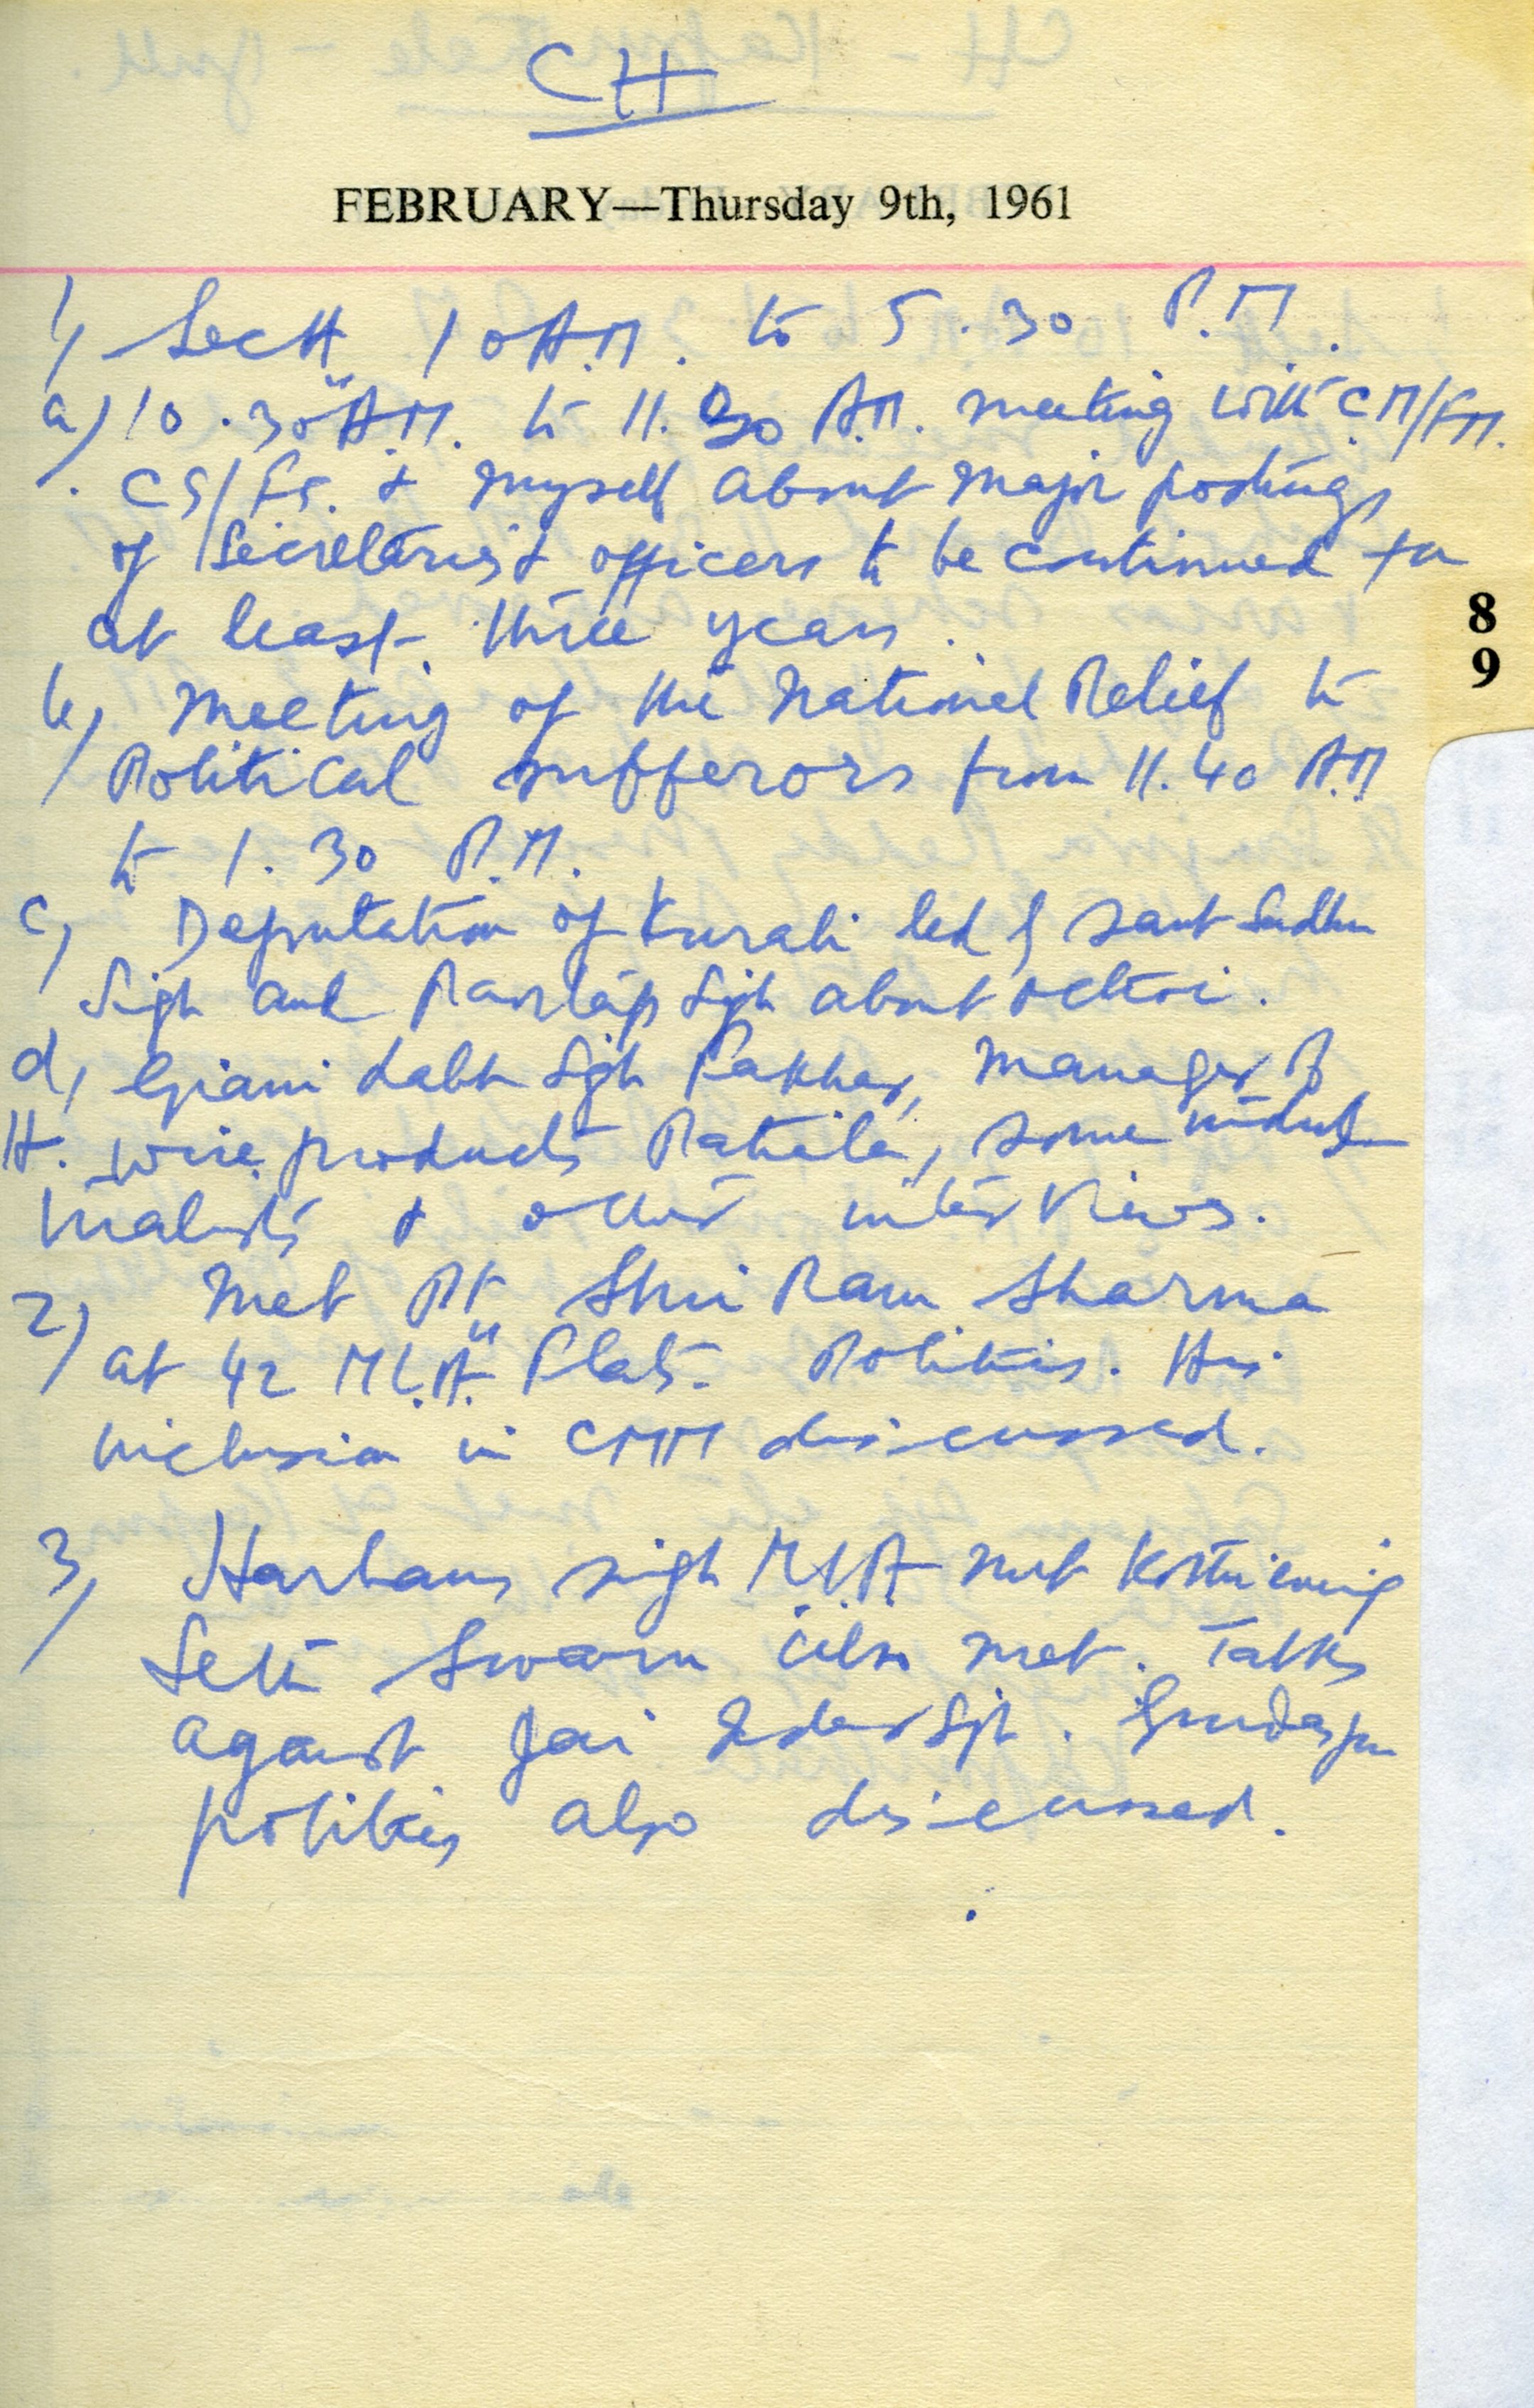 CH
FEBRUARY—Thursday 9th, 1961
1) Sectt 10 A.M. to 5.30 P.M.
a) 10.30 A.M. to 11.30 A.M. meeting with CM/FM.
CS/FS. & myself about major postings
of Secretariat officers to be continued for
at least three years.
b) Meeting of the National Relief to
Political sufferors from 11.40 A.M
to 1.30 P.M.
c) Deputation of Kurali led by Sant Sadhu
Singh and Partap Singh about octroi.
d) Giani Labh Sgh Fakhar, Manager of
H. wire products Patiala, some indus-
trialists & other interviews.
2) Met Pt Shri Ram Sharma
at 42 M.L.A. Flats. Politics. His
inclusion in discussed.
3) Harbans singh MLA met evening
Seth Swarn also met. Talks
against Jai Inder Sgh. Gurdaspur
politics also discussed.
8
9